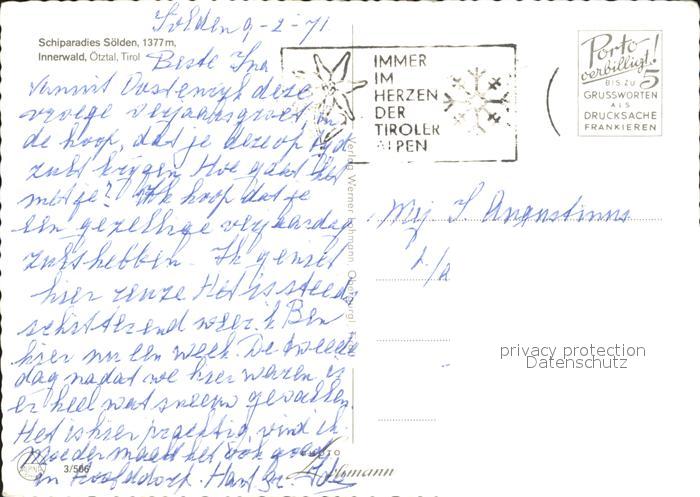 Sölden 9-2-71
Schiparadies Sölden, 1377m,
Innerwald, Ötztal, Tirol
Beste Ina
Vanuit Oostenryk deze
vroege verjaarsgroet in
de hoop, dat je deze op tyd
zult krygen. Hoe gaat het
met je? Ik hoop dat je
een gezellige verjaardag
zult hebben. Ik geniet
hier Het is steeds
schitterend weer. Ik Ben
hier nu een week. De tweede
dag nadat we hier waren is
er heel wat sneeuw gevallen.
Het is hier prachtig, vind ik.
Moeder maakt het ook goed
in Hoofddorp. Hart. gr.
3/506
IMMER
IM
HERZEN
DER
TIROLER
ALPEN
Porto
verbilligt!
BIS ZU 5
GRUSSWORTEN
ALS
DRUCKSACHE
FRANKIEREN
Mej I. Augustinus
privacy protection
Datenschutz